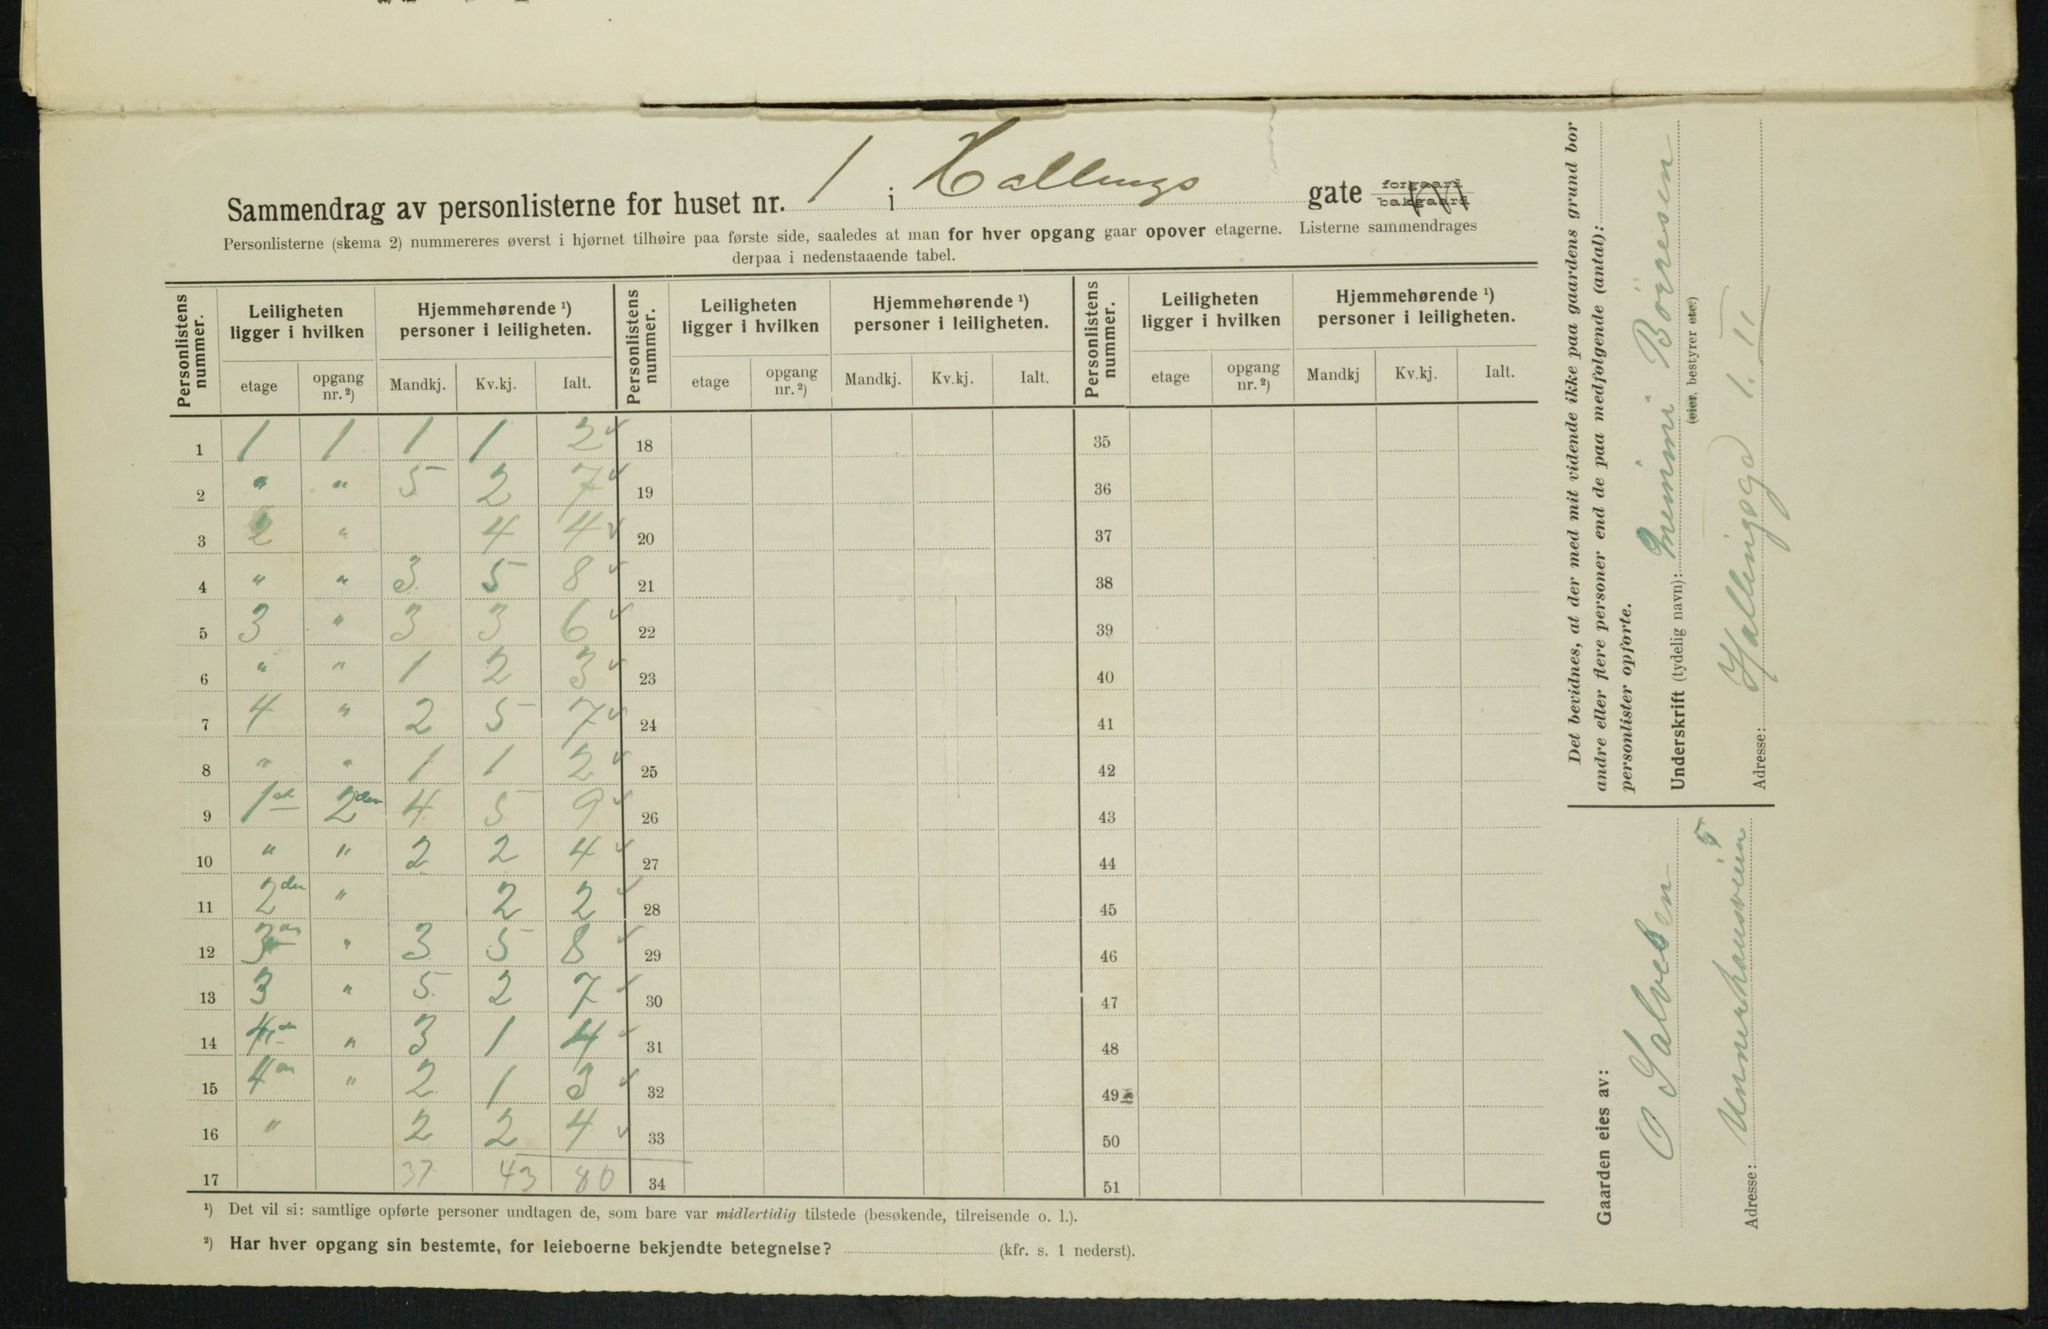 Sammendrag av personlisterne for huset nr. 1 i Hallings gate forgaard bakgaard
Personlisterne (skema 2) nummereres øverst i hjørnet tilhøire paa første side, saaledes at man for hver opgang gaar opover etagerne. Listerne sammendrages
derpaa i nedenstaaende tabel.
Personlistens nummer. Leiligheten ligger i hvilken Hjemmehørende ¹) personer i leiligheten. Personlistens nummer. Leiligheten ligger i hvilken Hjemmehørende ¹) personer i leiligheten. Personlistens nummer. Leiligheten ligger i hvilken Hjemmehørende ¹) personer i leiligheten.
etage opgang nr. ²) Mandkj. Kv.kj. Ialt. etage opgang nr. ²) Mandkj. Kv.kj. Ialt. etage opgang nr. ²) Mandkj Kv.kj. Ialt.
1 1 1 1 1 2 ✓ 18 35
2 " " 5 2 7 ✓ 19 36
3 2 " 4 4 ✓ 20 37
4 " " 3 5 8 ✓ 21 38
5 3 " 3 3 6 ✓ 22 39
6 " " 1 2 3 ✓ 23 40
7 4 " 2 5 7 ✓ 24 41
8 " " 1 1 2 ✓ 25 42
9 1st 2den 4 5 9 ✓ 26 43
10 " " 2 2 4 ✓ 27 44
11 2den " 2 2 ✓ 28 45
12 " 3 5 8 ✓ 29 46
13 3 " 5 2 7 ✓ 30 47
14 " 3 1 4 ✓ 31 48
15 " 2 1 3 ✓ 32 49
16 " 2 2 4 ✓ 33 50
17 37 43 80 34 51
¹) Det vil si: samtlige opførte personer undtagen de, som bare var midlertidig tilstede (besøkende, tilreisende o. l.).
²) Har hver opgang sin bestemte, for leieboerne bekjendte betegnelse? (kfr. s. 1 nederst).
Det bevidnes, at der med mit vidende ikke paa gaardens grund bor
andre eller flere personer end de paa medfølgende (antal):
personlister opførte.
Underskrift (tydelig navn): Minni Börresen
(eier, bestyrer etc.)
Adresse: Hallingsgd 1. II
Gaarden eies av:
O Salvesen
Adresse: 5